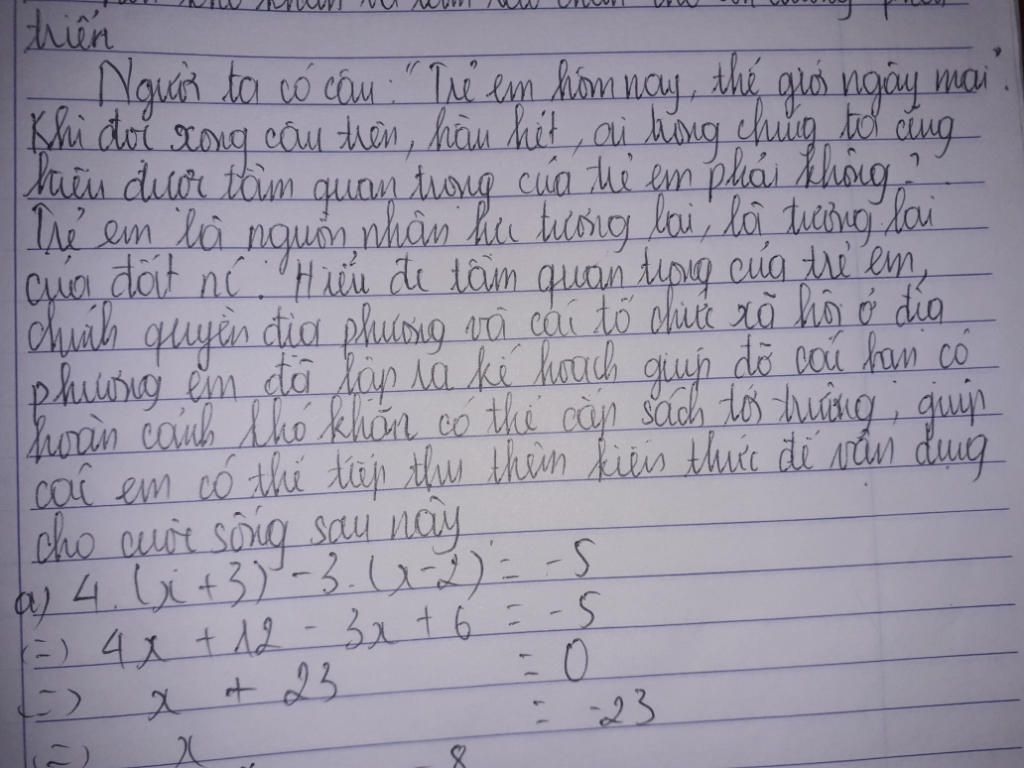 triển
Người ta có câu: "Trẻ em hôm nay, thế giới ngày mai".
Khi đọc xong câu trên, hầu hết, ai trong chúng ta cũng
hiểu được tầm quan trọng của trẻ em phải không?
Trẻ em là nguồn nhân lực tương lai, là tương lai
của đất nc. Hiểu đc tầm quan trọng của trẻ em,
chính quyền địa phương và các tổ chức xã hội ở địa
phương em đã lập ra kế hoạch giúp đỡ các bạn có
hoàn cảnh khó khăn có thể cắp sách tới trường, giúp
các em có thể tiếp thu thêm kiến thức để vận dụng
cho cuộc sống sau này
a) 4.(x+3) - 3.(x-2) = -5
(=) 4x + 12 - 3x + 6 = -5
(=) x + 23 = 0
(=) x = -23
8